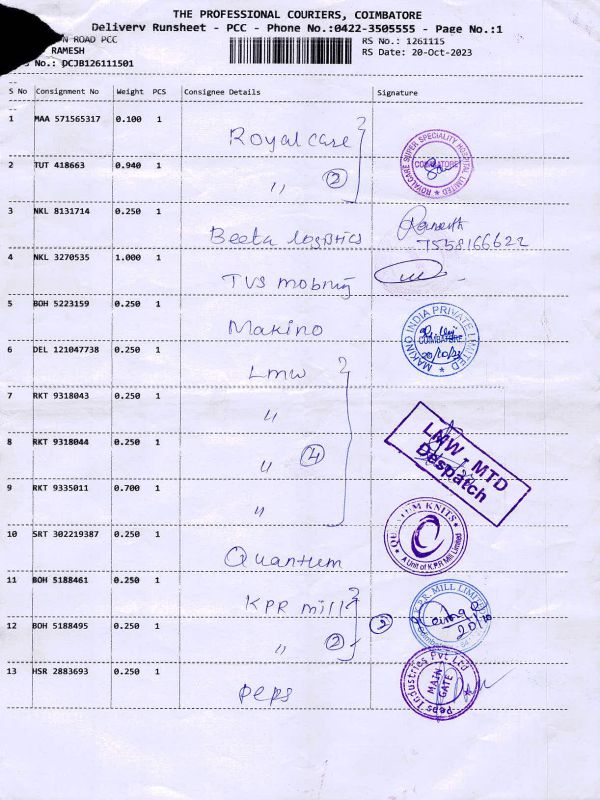 THE PROFESSIONAL COURIERS, COIMBATORE
Delivery Runsheet - PCC - Phone No.:0422-3505555 - Page No.:1
ROAD PCC
RS No.: 1261115
RAMESH
RS Date: 20-Oct-2023
No.: DCJB126111501
S No Consignment No Weight PCS Consignee Details Signature
1 MAA 571565317 0.100 1 Royal care
ROYALCARE SUPER SPECIALITY HOSPITAL LIMITED ★ COIMBATORE
2 TUT 418663 0.940 1 〃 2
3 NKL 8131714 0.250 1 Beeta logistics
7558166622
4 NKL 3270535 1.000 1 TVS mobrity
5 BOH 5223159 0.250 1 Makino
MAKINO INDIA PRIVATE LIMITED ★ COIMBATORE
6 DEL 121047738 0.250 1 Lmw
7 RKT 9318043 0.250 1 〃
8 RKT 9318044 0.250 1 〃 4
LMW - MTD
Despatch
9 RKT 9335011 0.700 1 〃
10 SRT 302219387 0.250 1 Quantum
QUANTUM KNITS
A Unit of K.P.R Mill Limited
11 BOH 5188461 0.250 1 KPR mill
K.P.R. MILL LIMITED
2 20/10
12 BOH 5188495 0.250 1 〃 2
13 HSR 2883693 0.250 1 peps
Peps Industries Pvt Ltd
MAIN
GATE